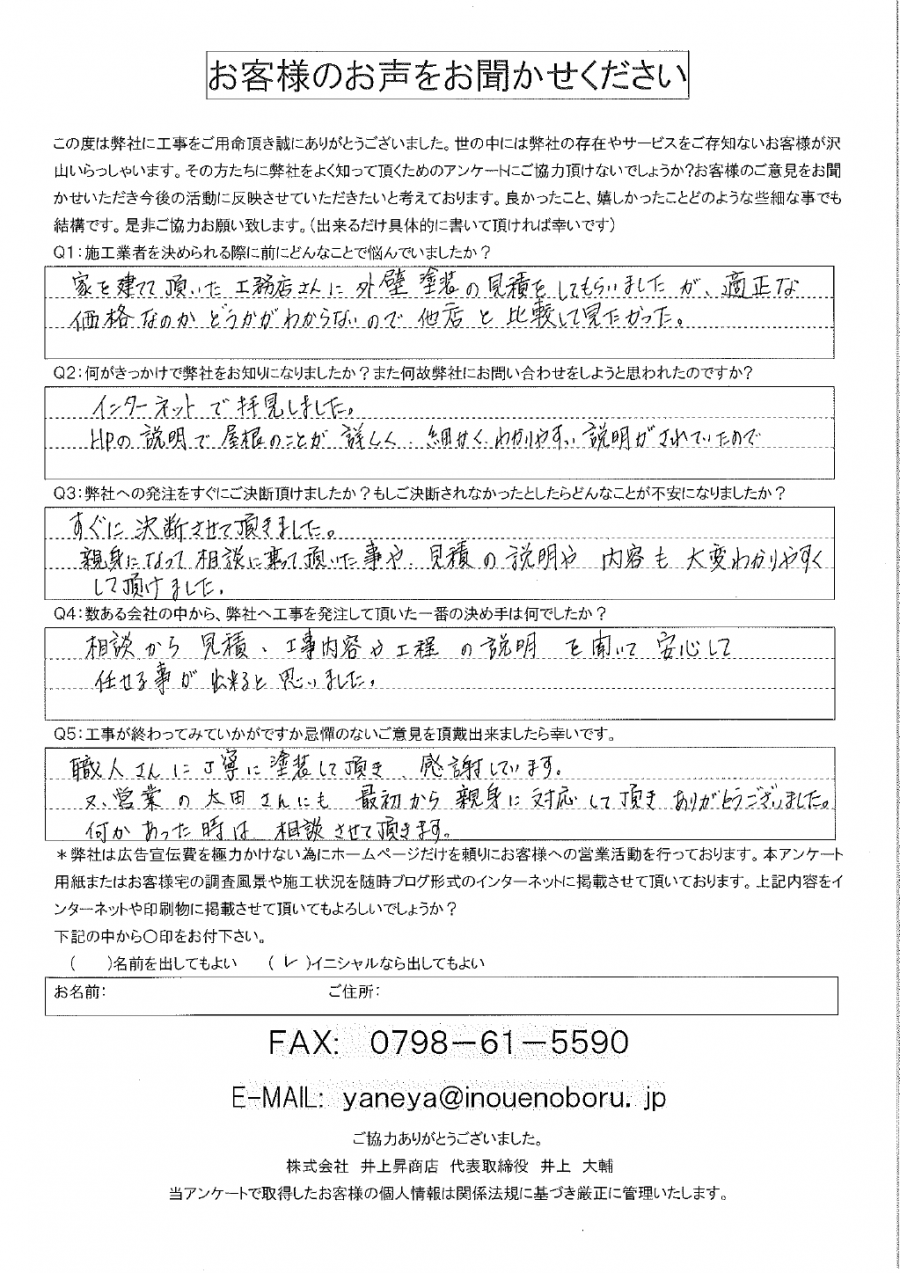 お客様のお声をお聞かせください
この度は弊社に工事をご用命頂き誠にありがとうございました。世の中には弊社の存在やサービスをご存知ないお客様が沢
山いらっしゃいます。その方たちに弊社をよく知って頂くためのアンケートにご協力頂けないでしょうか?お客様のご意見をお聞
かせいただき今後の活動に反映させていただきたいと考えております。良かったこと、嬉しかったことどのような些細な事でも
結構です。是非ご協力お願い致します。(出来るだけ具体的に書いて頂ければ幸いです)
Q1:施工業者を決められる際に前にどんなことで悩んでいましたか?
家を建てて頂いた工務店さんに外壁塗装の見積をしてもらいましたが、適正な
価格なのかどうかがわからないので他店と比較して見たかった。
Q2:何がきっかけで弊社をお知りになりましたか?また何故弊社にお問い合わせをしようと思われたのですか?
インターネットで拝見しました。
HPの説明で屋根のことが詳しく、細かくわかりやすい説明がされていたので
Q3:弊社への発注をすぐにご決断頂けましたか?もしご決断されなかったとしたらどんなことが不安になりましたか?
すぐに決断させて頂きました。
親身になって相談に乗って頂いた事や、見積の説明や内容も大変わかりやすく
して頂けました。
Q4:数ある会社の中から、弊社へ工事を発注して頂いた一番の決め手は何でしたか?
相談から見積、工事内容や工程の説明を聞いて安心して
任せる事が出来ると思いました。
Q5:工事が終わってみていかがですか忌憚のないご意見を頂戴出来ましたら幸いです。
職人さんに丁寧に塗装して頂き、感謝しています。
又、営業の太田さんにも最初から親身に対応して頂きありがとうございました。
何かあった時は相談させて頂きます。
*弊社は広告宣伝費を極力かけない為にホームページだけを頼りにお客様への営業活動を行っております。本アンケート
用紙またはお客様宅の調査風景や施工状況を随時ブログ形式のインターネットに掲載させて頂いております。上記内容をイ
ンターネットや印刷物に掲載させて頂いてもよろしいでしょうか?
下記の中から○印をお付下さい。
( )名前を出してもよい (レ)イニシャルなら出してもよい
お名前: ご住所:
FAX: 0798-61-5590
E-MAIL: yaneya@inouenoboru.jp
ご協力ありがとうございました。
株式会社 井上昇商店 代表取締役 井上 大輔
当アンケートで取得したお客様の個人情報は関係法規に基づき厳正に管理いたします。